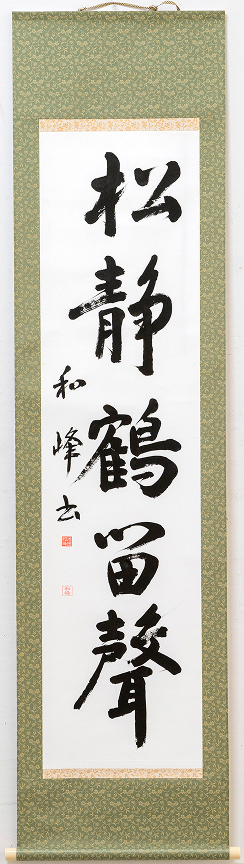 松静鶴留聲
和峰書